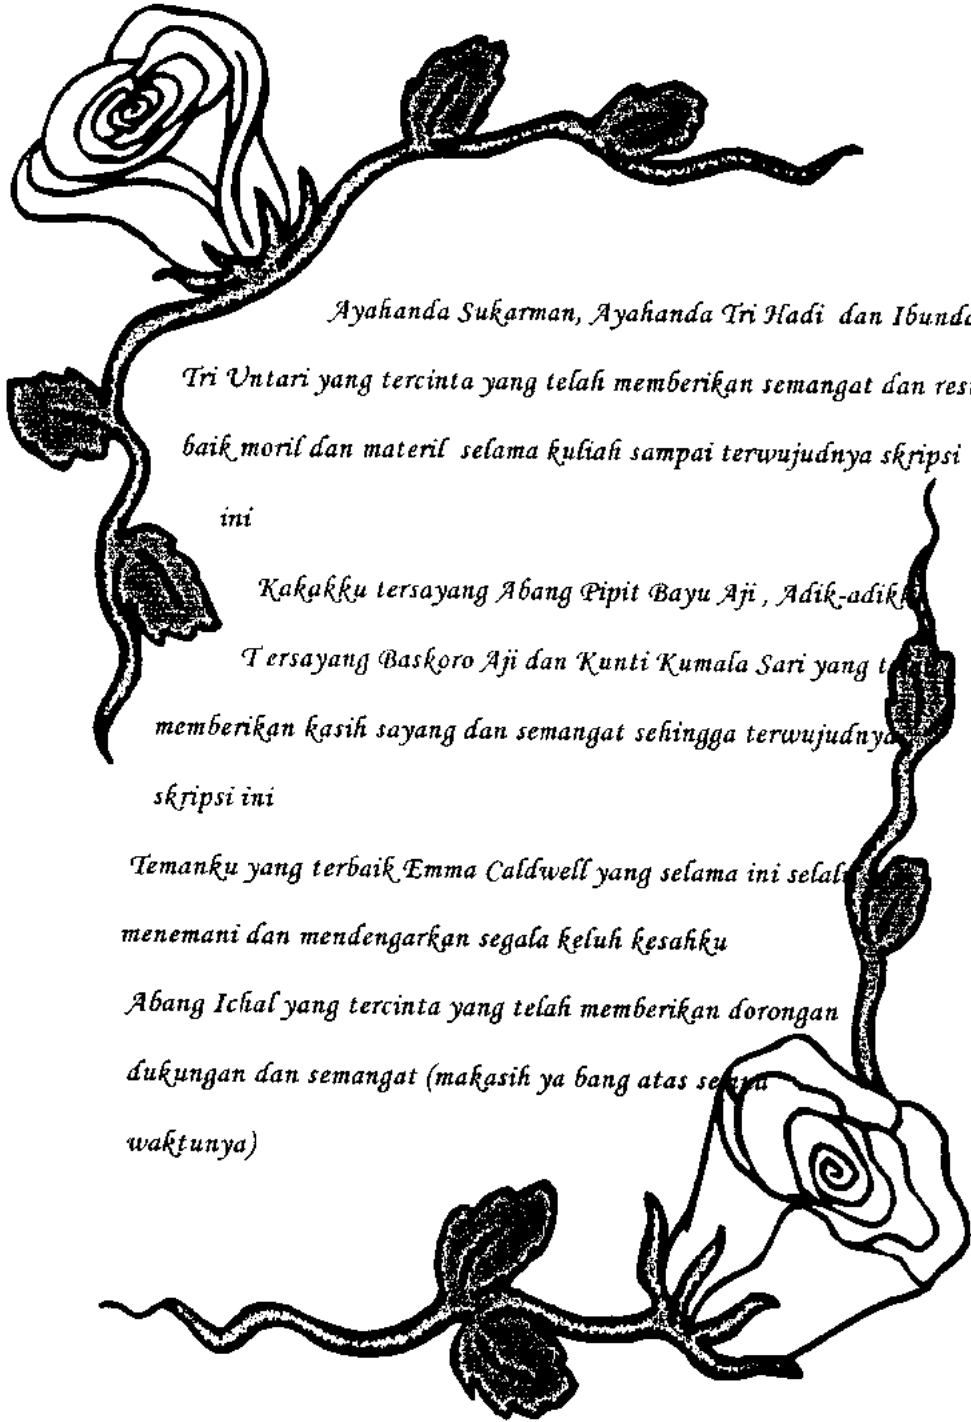 Ayahanda Sukarman, Ayahanda Tri Hadi dan Ibunda
Tri Untari yang tercinta yang telah memberikan semangat dan
baik moril dan materil selama kuliah sampai terwujudnya skripsi
ini
Kakakku tersayang Abang Pipit Bayu Aji , Adik-adikku
T ersayang Baskoro Aji dan Kunti Kumala Sari yang
memberikan kasih sayang dan semangat sehingga terwujudnya
skripsi ini
Temanku yang terbaik Emma Caldwell yang selama ini selalu
menemani dan mendengarkan segala keluh kesahku
Abang Ichal yang tercinta yang telah memberikan dorongan
dukungan dan semangat (makasih ya bang atas semua
waktunya)